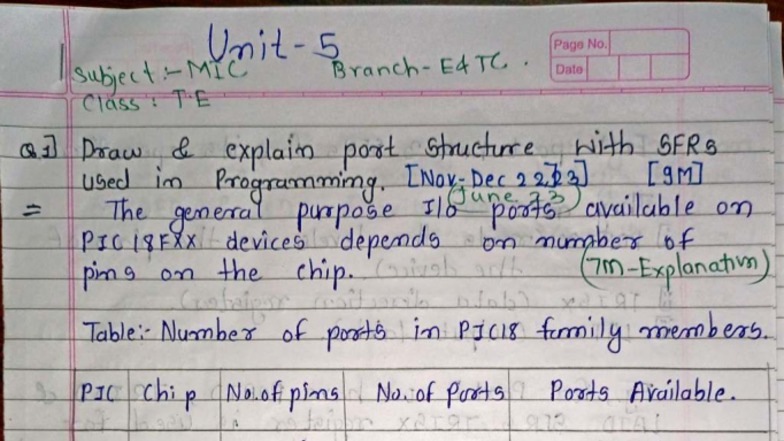 Unit-5
Page No.
Date
Subject :- MIC Branch- E&TC .
Class : T.E
Q.1] Draw & explain port structure with SFRs
used in Programming. [Nov-Dec 22,23] [9M]
(June 23)
= The general purpose I/o ports available on
PIC18FXX devices depends on number of
pins on the chip. (7m-Explanation)
Table:- Number of ports in PIC18 family members.
PIC Chip No. of pins No. of Ports Ports Available.